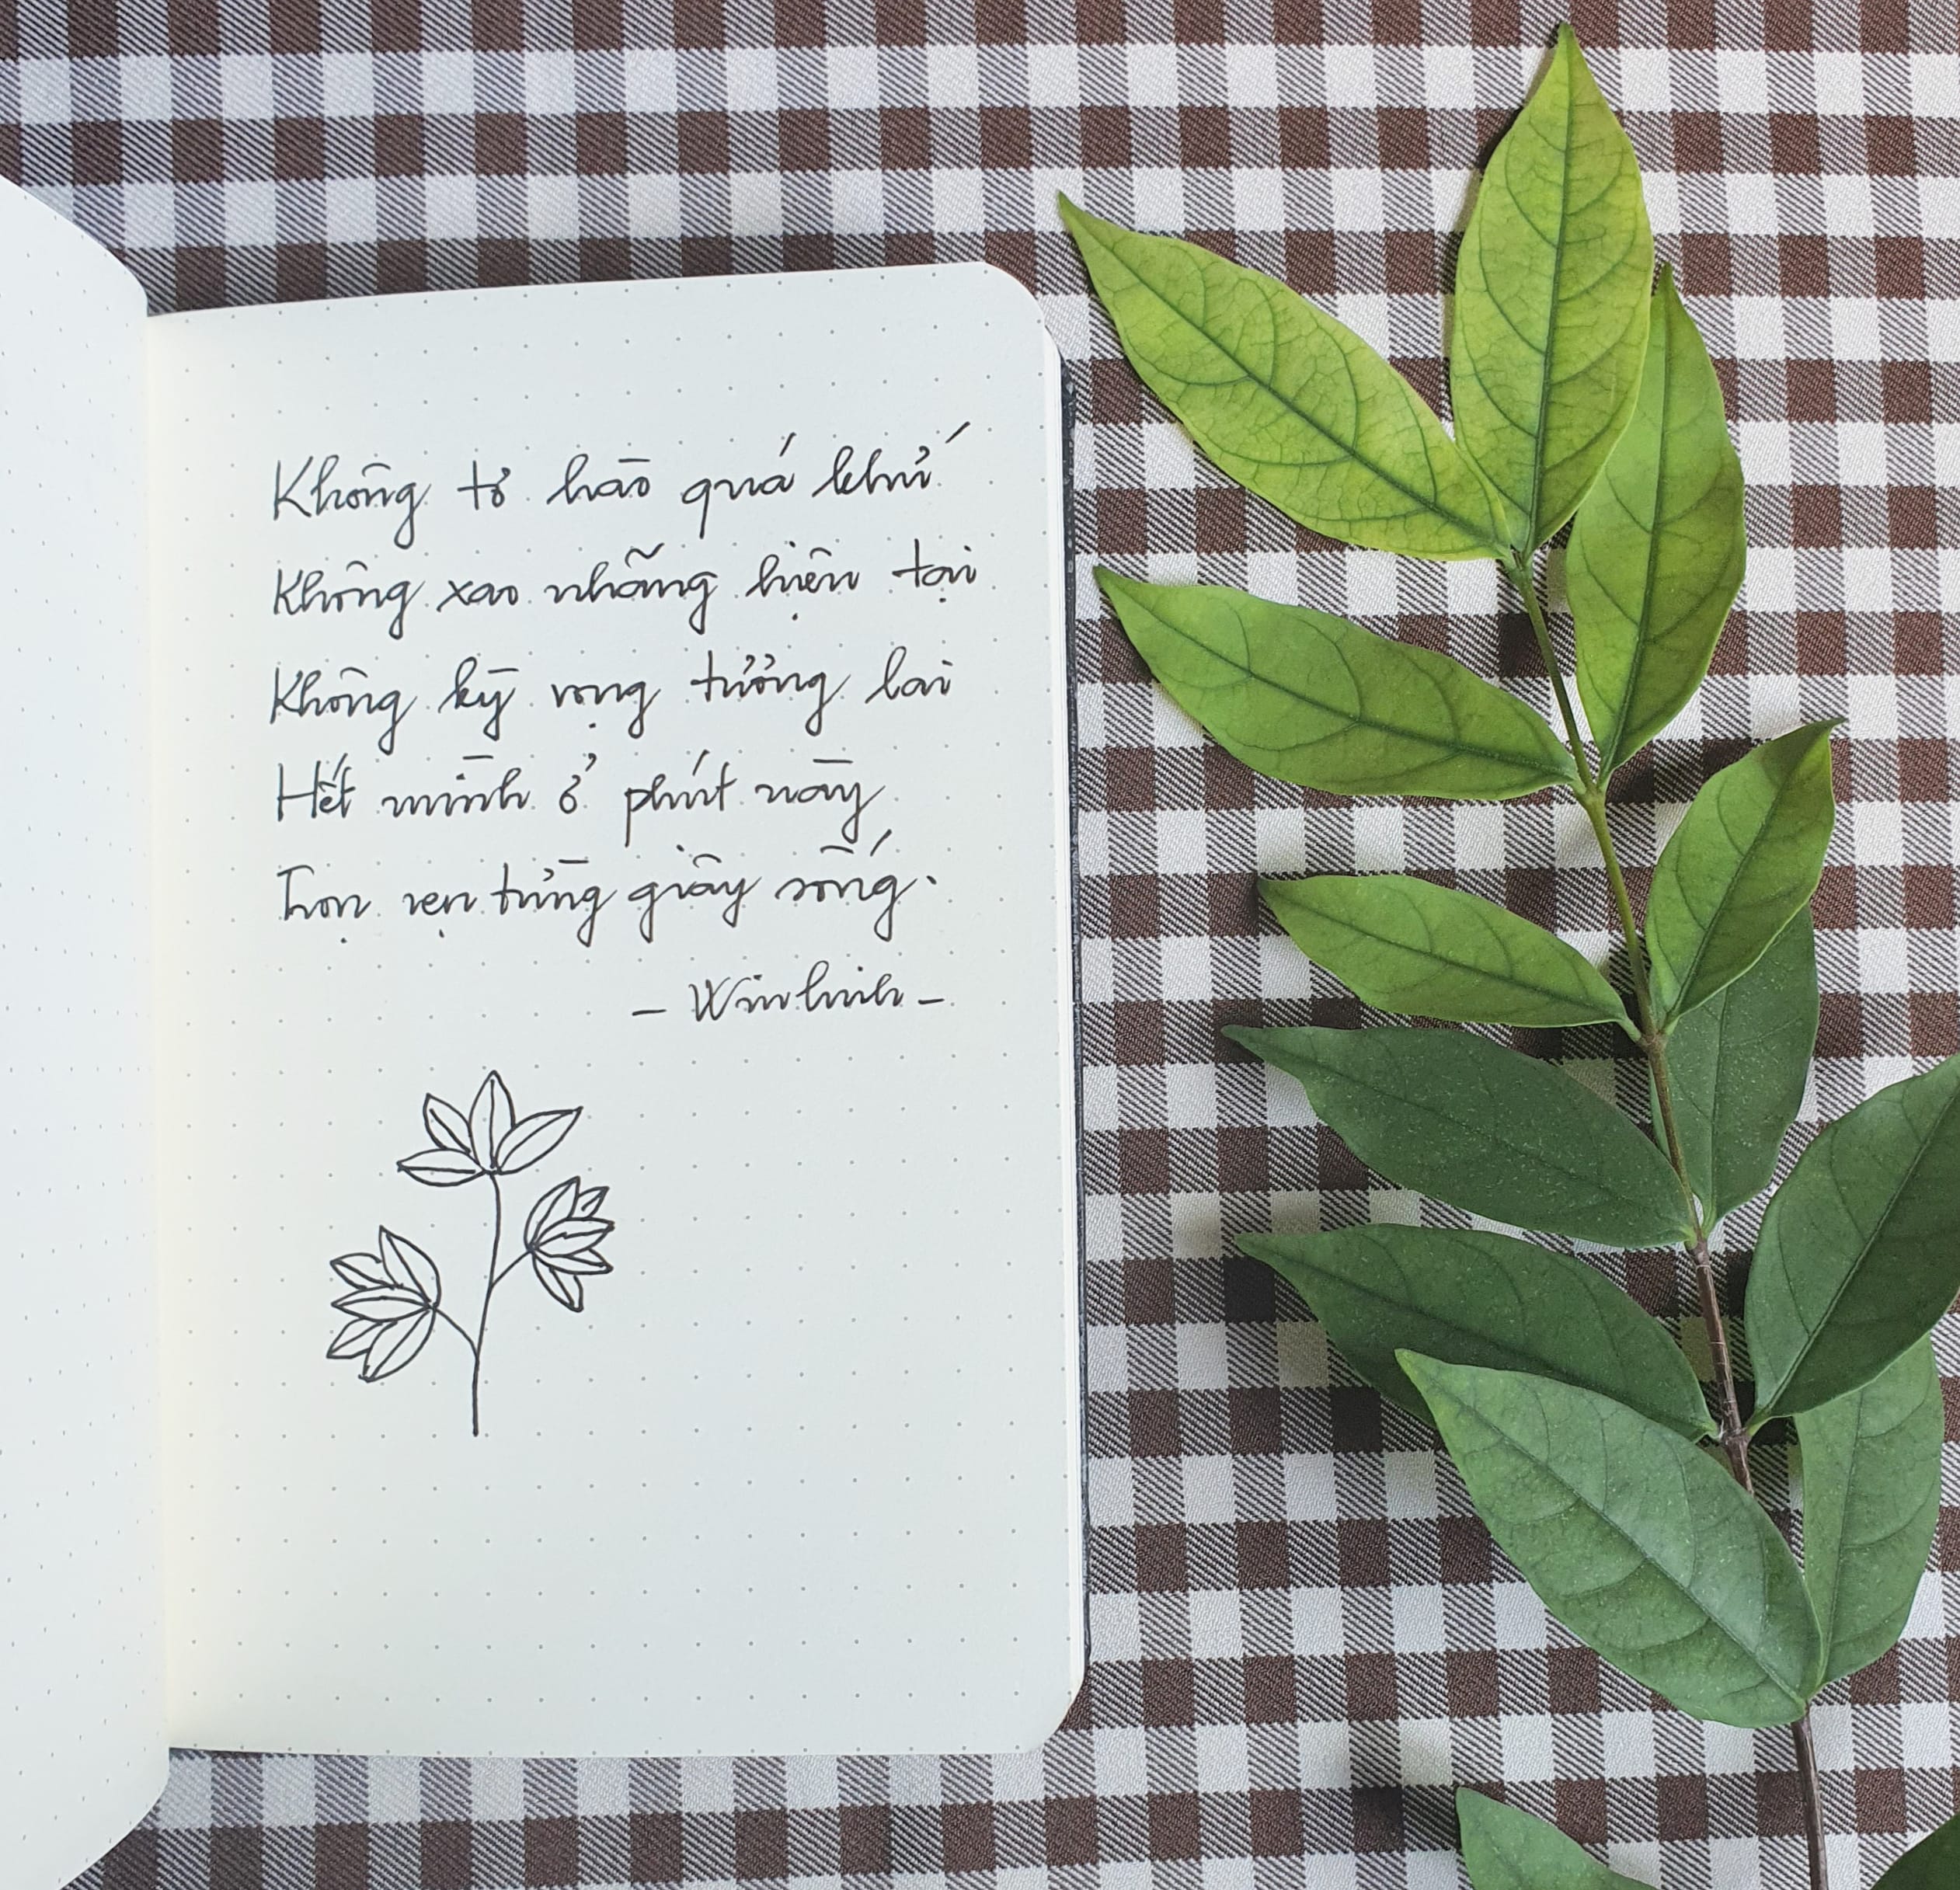 Không tơ hào quá khứ
Không xao nhãng hiện tại
Không kỳ vọng tương lai
Hết mình ở phút này
Trọn vẹn từng giây sống.
- Winlinh -